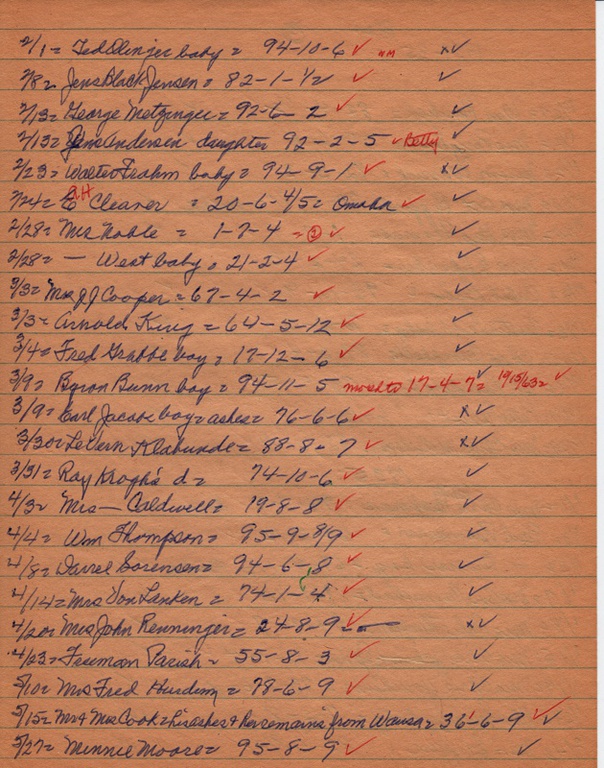 2/1 = Ted Olinger baby = 94-10-6 ✓ NM x✓
2/8 = Jens Black Jensen = 82-1-1/2 ✓ ✓
2/13 = George Metzinger = 92-6-2 ✓ ✓
2/13 = Jens Andersen daughter 92-2-5 ✓ Betty ✓
2/23 = Walter Frahm baby = 94-9-1 ✓ x✓
2/24 = Cleaver = 20-6-4/5 = Omaha ✓ ✓
2/28 = Mrs Noble = 1-7-4 = ✓ ✓
2/28 = — West baby = 21-2-4 ✓ ✓
3/3 = Mrs J J Cooper = 67-4-2 ✓ ✓
3/3 = Arnold King = 64-5-12 ✓ ✓
3/4 = Fred Grabbe boy = 17-12-6 ✓ ✓
3/9 = Byron Bunn boy = 94-11-5 moved to 17-4-7 = ✓ ✓
3/9 = Earl Jacobe boy = ashes = 76-6-6 ✓ x✓
3/30 = LeVern Klabunde = 88-8-7 ✓ x✓
3/31 = Ray Krogh's d = 74-10-6 ✓ ✓
4/3 = Mrs — Caldwell = 19-8-8 ✓ ✓
4/4 = Wm Thompson = 95-9-8/9 ✓ ✓
4/8 = Darrel Sorensen = 94-6-8 ✓
4/14 = Mrs Von Lanken = 74-1-4 ✓ ✓
4/20 = Mrs John Renninger = 24-8-9 ✓ x✓
4/23 = Freeman Parish = 55-8-3 ✓ ✓
5/10 = Mrs Fred = 78-6-9 ✓ ✓
5/15 = Mr & Mrs Cook = his ashes & her remains from Wausa = 36-6-9 ✓ ✓
5/27 = Minnie Moore = 95-8-9 ✓ ✓